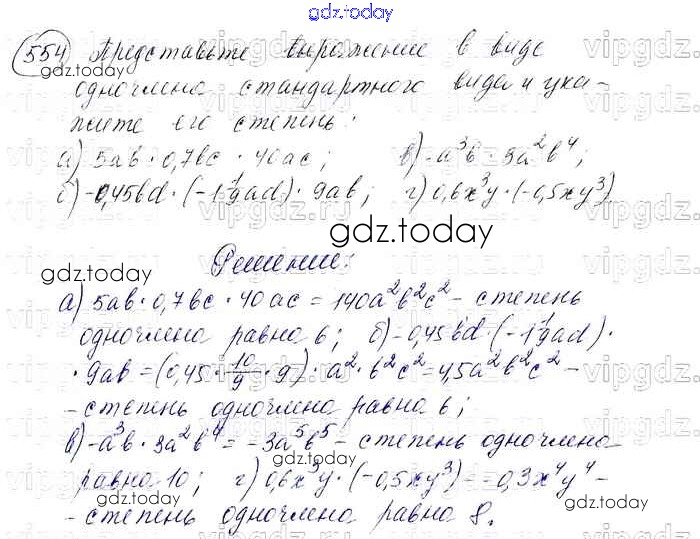 gdz.today
554 Представьте выражение в виде
одночлена стандартного вида и ука-
жите его степень:
а) 5ab · 0,7bc · 40ac; в) -a³b · 3a²b⁴;
б) -0,45bd · (-1 1/9 ad) · 9ab; г) 0,6x³y · (-0,5xy³)
gdz.today
gdz.today
Решение:
gdz.today
а) 5ab · 0,7bc · 40ac = 140a²b²c² - степень
одночлена равна 6; б) -0,45bd · (-1 1/9 ad) ·
· 9ab = (0,45 · 10/9 · 9) · a² · b²c² = 4,5a²b²c² -
- степень одночлена равна 6;
в) -a³b · 3a²b⁴ = -3a⁵b⁵ - степень одночлена
равна 10; г) 0,6x³y · (-0,5xy³) = -0,3x⁴y⁴ -
- степень одночлена равна 8.
gdz.today
gdz.today